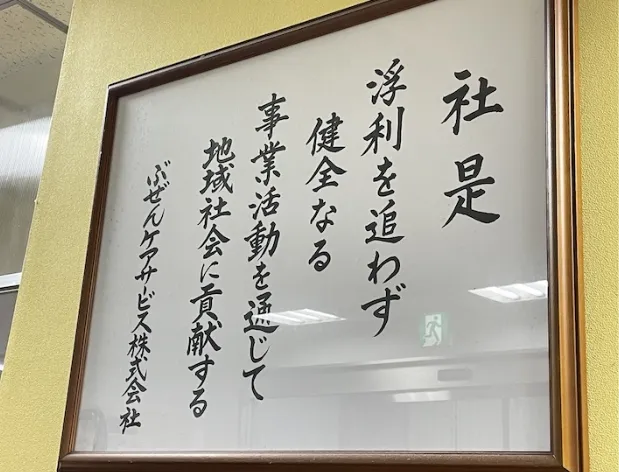 社是
浮利を追わず
健全なる
事業活動を通じて
地域社会に貢献する
ぶぜんケアサービス株式会社